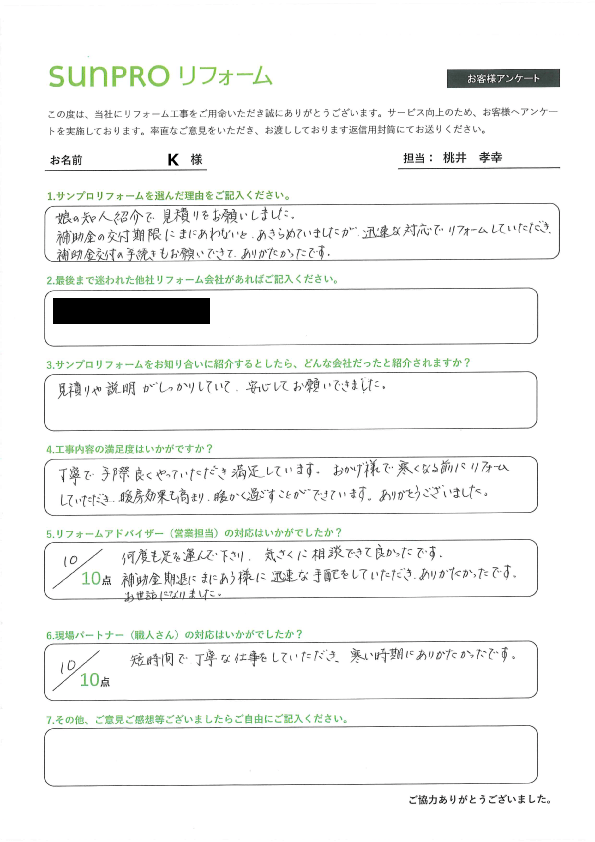 SUNPRO リフォーム
お客様アンケート
この度は、当社にリフォーム工事をご用命いただき誠にありがとうございます。サービス向上のため、お客様へアンケー
トを実施しております。率直なご意見をいただき、お渡ししております返信用封筒にてお送りください。
お名前 K 様 担当: 桃井 孝幸
1.サンプロリフォームを選んだ理由をご記入ください。
娘の知人紹介で見積りをお願いしました。
補助金の交付期限にまにあわないと、あきらめていましたが、迅速な対応でリフォームしていただき、
補助金交付の手続きもお願いできて、ありがたかったです。
2.最後まで迷われた他社リフォーム会社があればご記入ください。
3.サンプロリフォームをお知り合いに紹介するとしたら、どんな会社だったと紹介されますか?
見積りや説明がしっかりしていて、安心してお願いできました。
4.工事内容の満足度はいかがですか?
丁寧で手際良くやっていただき満足しています。おかげ様で寒くなる前にリフォーム
していただき、暖房効果も高まり、暖かく過ごすことができています。ありがとうございました。
5.リフォームアドバイザー(営業担当)の対応はいかがでしたか?
10/10点
何度も足を運んで下さり、気さくに相談できて良かったです。
補助金期退にまにあう様に迅速な手配をしていただき、ありがたかったです。
お世話になりました。
6.現場パートナー(職人さん)の対応はいかがでしたか?
10/10点
短時間で丁寧な仕事をしていただき、寒い時期にありがたかったです。
7.その他、ご意見ご感想等ございましたらご自由にご記入ください。
ご協力ありがとうございました。